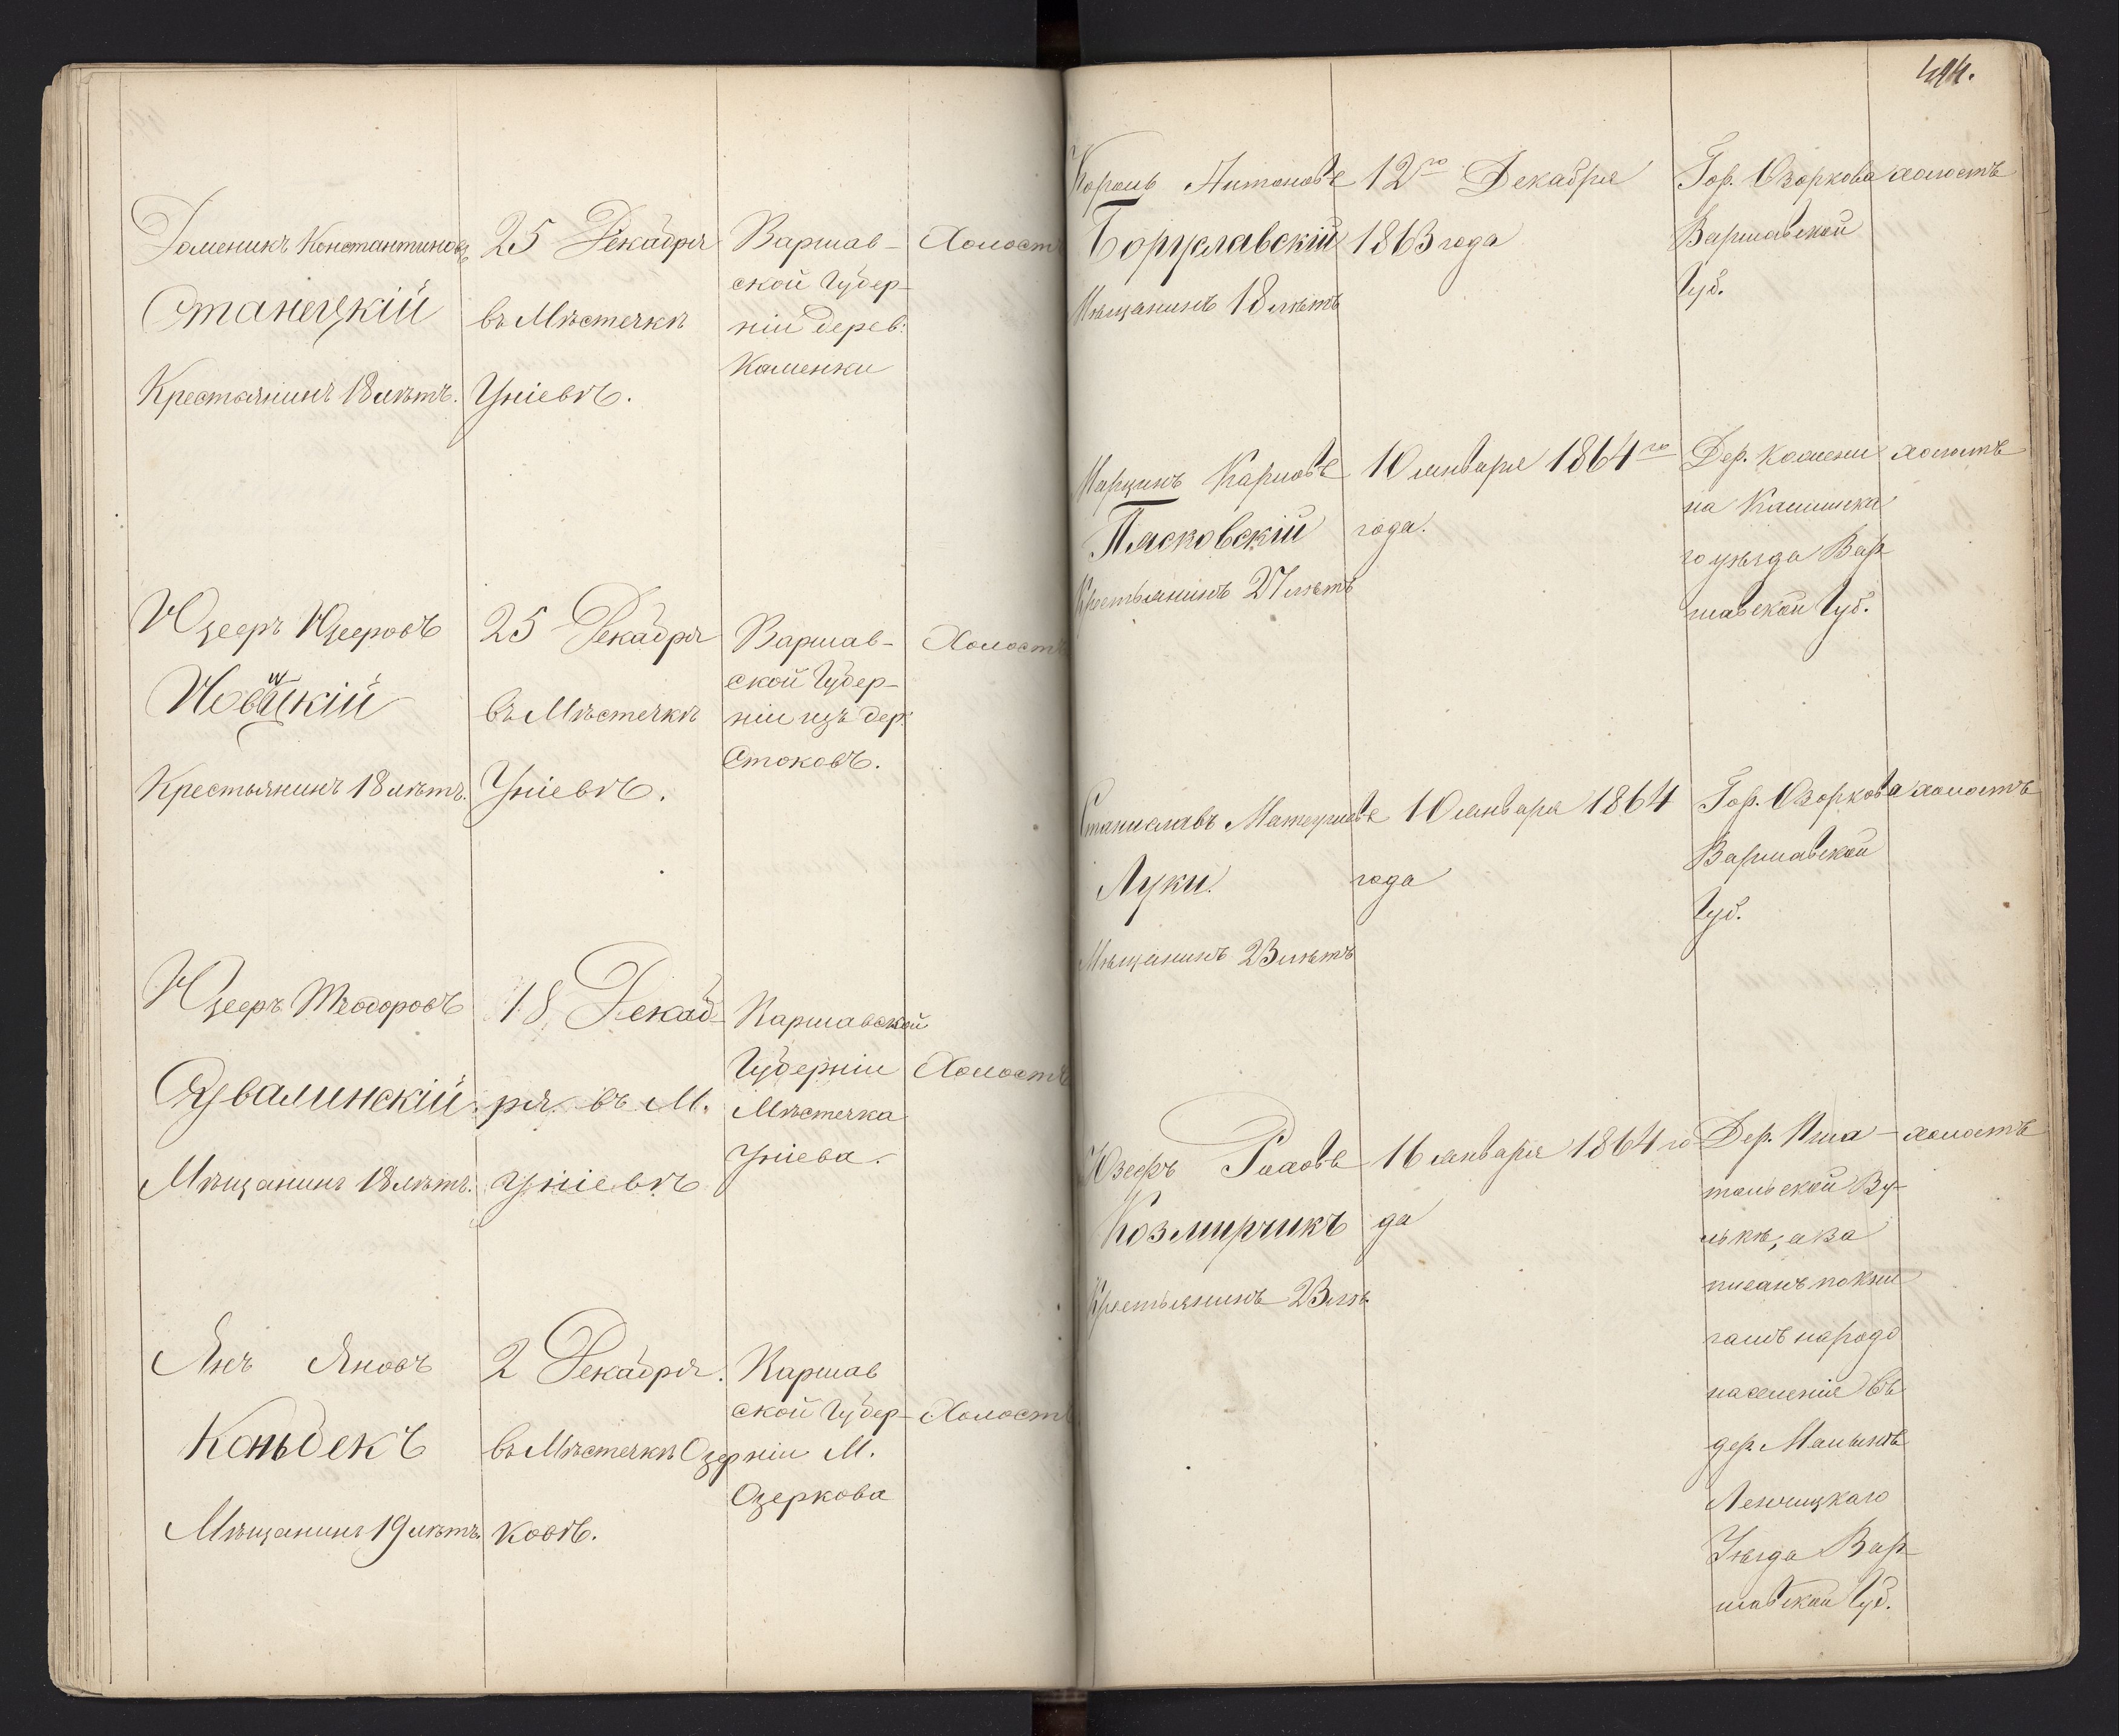 Доменикъ Константиновъ
Станецкій
Крестьянинъ 18 лѣтъ.
25 Декабря
въ Мѣстечкѣ
Уніевѣ.
Варшав-
ской Губер-
ніи дерев:
Каменки
Холостъ
Юзефъ Юзефовъ
Новицкій
Крестьянинъ 18 лѣтъ.
25 Декабря
въ Мѣстечкѣ
Уніевѣ.
Варшав-
ской Губер-
ніи изъ дер.
Стоковъ.
Холостъ
Юзефъ Теодоровъ
Мѣщанинъ 18 лѣтъ.
18 Декаб-
ря. въ М.
Уніевѣ
Варшавской
Губерніи
Мѣстечка
Уніева.
Холостъ
Янъ Яновъ
Коньдекъ
Мѣщанинъ 19 лѣтъ.
2 Декабря.
въ Мѣстечкѣ Озер
ковѣ.
Варшав
ской Губер-
ніи М.
Озеркова
Холостъ
444.
Кароль Антоновъ
Боруславскій
Мѣщанинъ 18 лѣтъ
12го Декабря
1863 года
Гор. Озоркова
Варшавской
Губ.
холостъ
Марцинъ Карловъ
Пясковскій
Крестьянинъ 27 лѣтъ
10 января 1864го
года.
Дер. Камени
на
го уѣзда Вар-
шавской Губ.
холостъ
Станиславъ Матеушовъ
Луки.
Мѣщанинъ 23 лѣтъ
10 января 1864
года
Гор. Озоркова
Варшавской
Губ.
холостъ
Юзефъ Роховъ
Козмирчикъ
Крестьянинъ 23 лѣтъ
16 января 1864 го
да
Дер. Пша-
тольской Ву-
лькѣ, а за
писанъ по кни
гамъ народо
населенія въ
дер.
Ленчицкаго
Уѣзда Вар-
шавской Губ.
холостъ